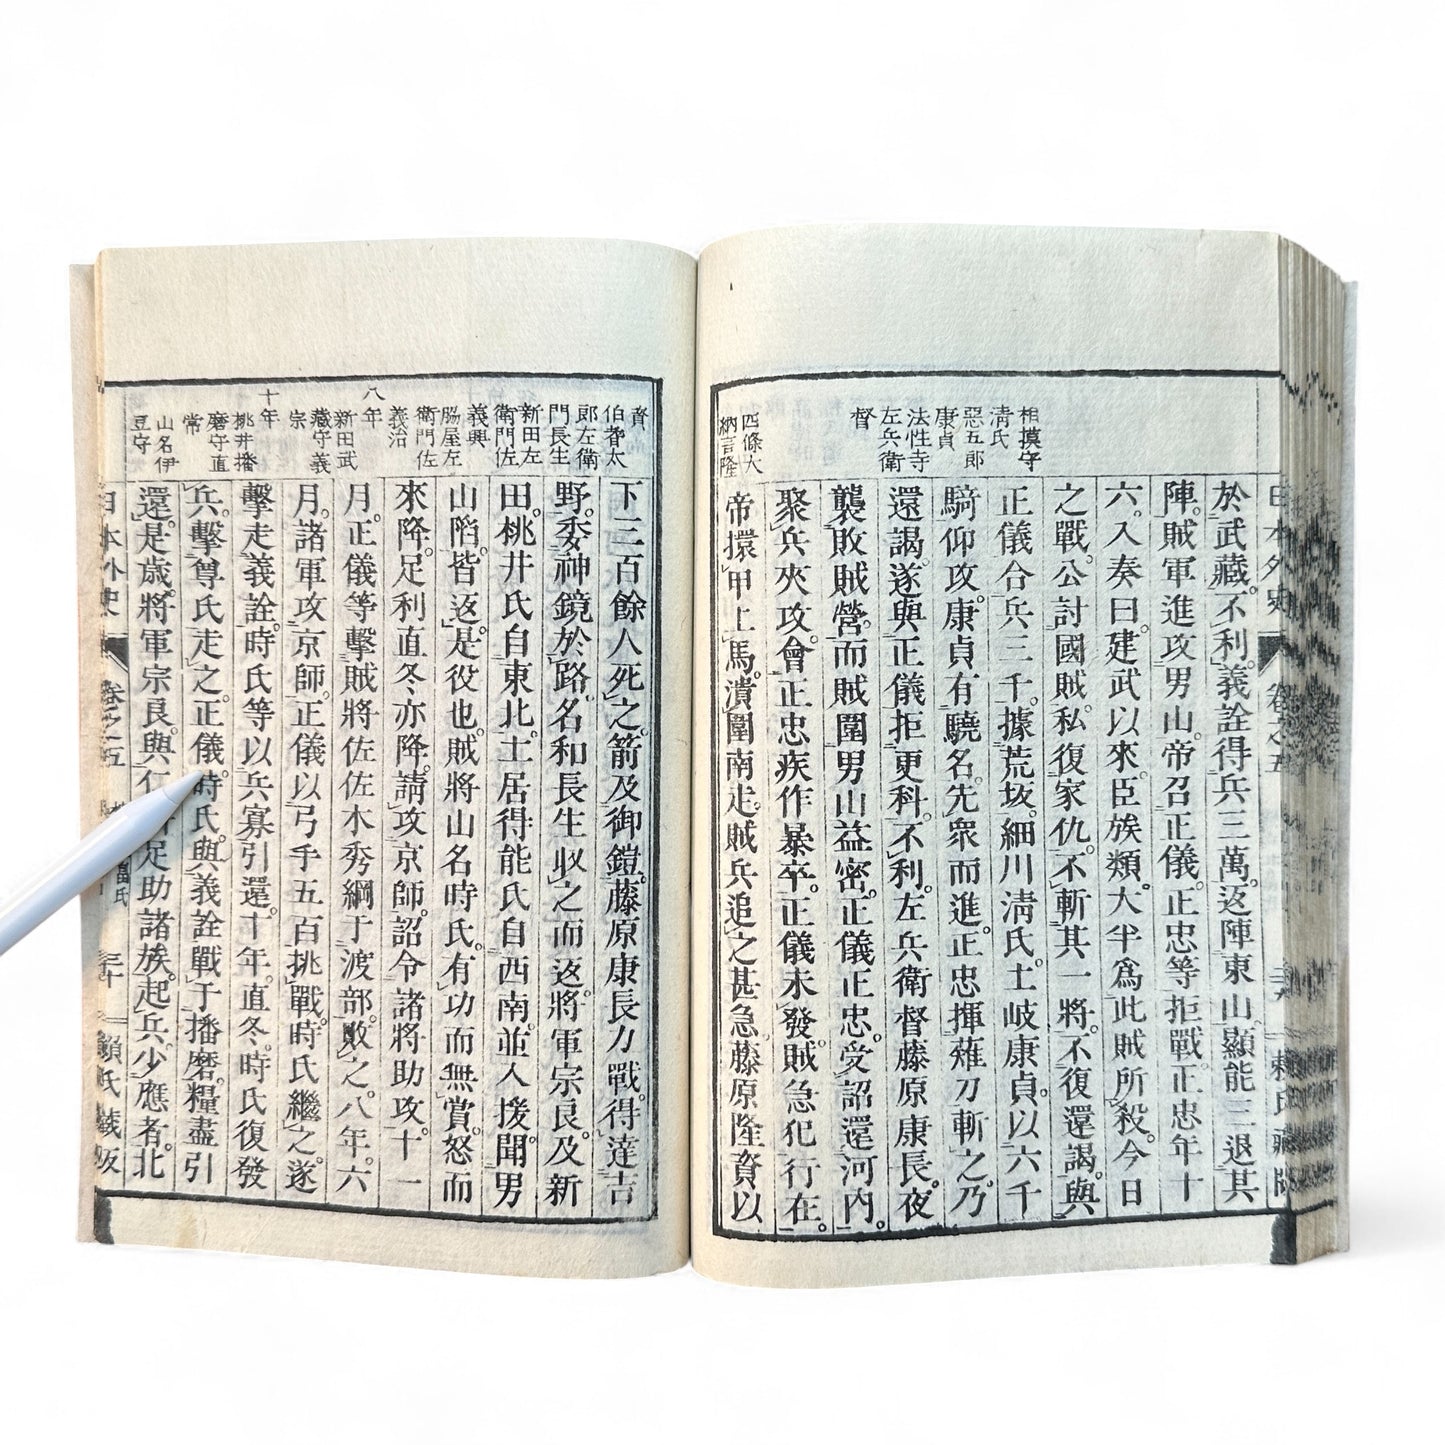 日本外史 卷之五 賴氏藏版
相摸守
淸氏
惡五郎
康貞
法性寺
左兵衛
督
四條大
納言隆
於武藏。不利。義詮得兵三萬。返陣東山。顯能三退其
陣。賊軍進攻男山。帝召正儀。正忠等拒戰。正忠年十
六。入奏曰。建武以來。臣族類。大半爲此賊所殺。今日
之戰。公討國賊。私復家仇。不斬其一將。不復還謁。與
正儀合兵三千。據荒坂。細川淸氏。土岐康貞。以六千
騎仰攻。康貞有驍名。先衆而進。正忠揮薙刀斬之。乃
還謁。遂與正儀拒更科。不利。左兵衛督藤原康長。夜
襲敗賊營。而賊圍男山益密。正儀正忠。受詔還河內。
聚兵夾攻。會正忠疾作暴卒。正儀未發。賊急犯行在。
帝擐甲上馬。潰圍南走。賊兵追之甚急。藤原隆資以
資
伯耆太
郎左衛
門長生
新田左
衛門佐
義興
脇屋左
衛門佐
義治
八年
新田武
藏守義
宗
十年
桃井播
磨守直
常
山名伊
豆守
下三百餘人死之。箭及御鎧。藤原康長力戰。得達吉
野。委神鏡於路。名和長生收之而返。將軍宗良。及新
田。桃井氏自東北。土居得能氏自西南。並入援。聞男
山陷。皆返。是役也。賊將山名時氏。有功而無賞。怒而
來降。足利直冬亦降。請攻京師。詔令諸將助攻。十一
月。正儀等擊賊將佐佐木秀綱于渡部。敗之。八年。六
月。諸軍攻京師。正儀以弓手五百挑戰。時氏繼之。遂
擊走義詮。時氏等以兵寡引還。十年。直冬。時氏復發
兵。擊尊氏走之。正儀。時氏。與義詮戰于播磨。糧盡引
還。是歲。將軍宗良。與仁足助諸族。起兵。少應者。北
日本外史 卷之五 三十 賴氏藏版